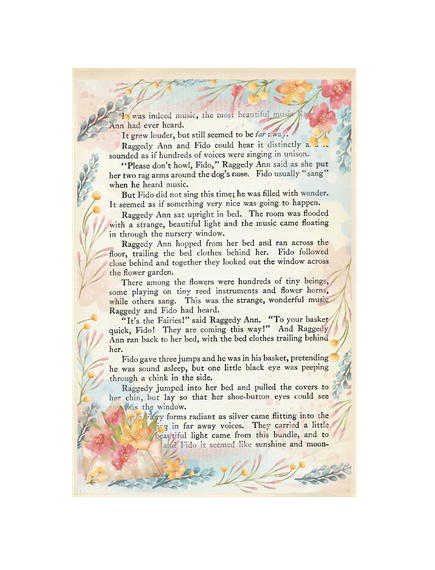 It was indeed music, the most beautiful music
Ann had ever heard.
It grew louder, but still seemed to be far away.
Raggedy Ann and Fido could hear it distinctly
sounded as if hundreds of voices were singing in unison.
"Please don't howl, Fido," Raggedy Ann said as she put
her two rag arms around the dog's nose. Fido usually "sang"
when he heard music.
But Fido did not sing this time; he was filled with wonder.
It seemed as if something very nice was going to happen.
Raggedy Ann sat upright in bed. The room was flooded
with a strange, beautiful light and the music came floating
in through the nursery window.
Raggedy Ann hopped from her bed and ran across the
floor, trailing the bed clothes behind her. Fido followed
close behind and together they looked out the window across
the flower garden.
There among the flowers were hundreds of tiny beings,
some playing on tiny reed instruments and flower horns,
while others sang. This was the strange, wonderful music
Raggedy and Fido had heard.
"It's the Fairies!" said Raggedy Ann. "To your basket
quick, Fido! They are coming this way!" And Raggedy
Ann ran back to her bed, with the bed clothes trailing behind
her.
Fido gave three jumps and he was in his basket, pretending
he was sound asleep, but one little black eye was peeping
through a chink in the side.
Raggedy jumped into her bed and pulled the covers to
her chin, but lay so that her shoe-button eyes could see
the window.
forms radiant as silver came flitting into the
in far away voices. They carried a little
beautiful light came from this bundle, and to
and Fido it seemed like sunshine and moon-